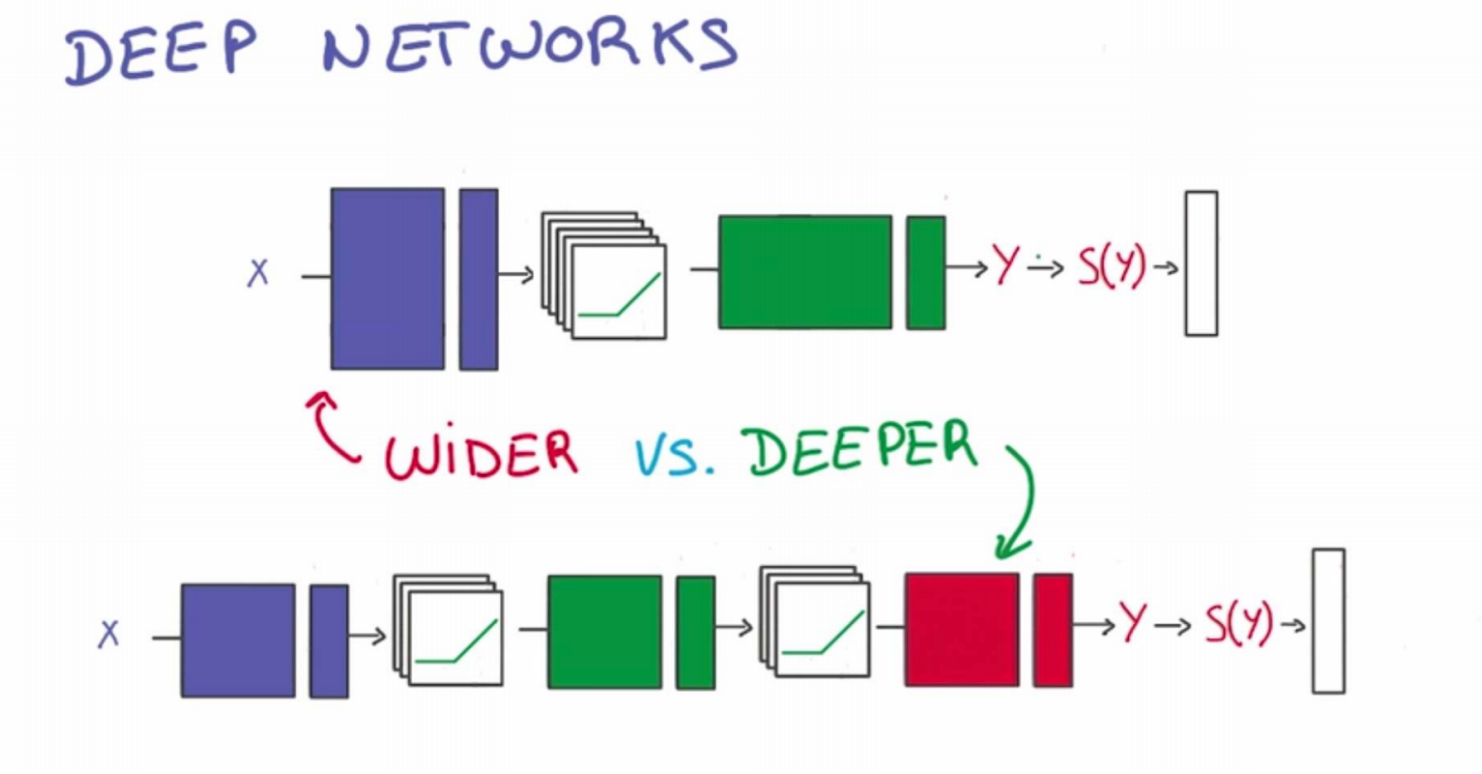 DEEP NETWORKS
X Y S(Y)
WiDER VS. DEEPER
X Y S(Y)